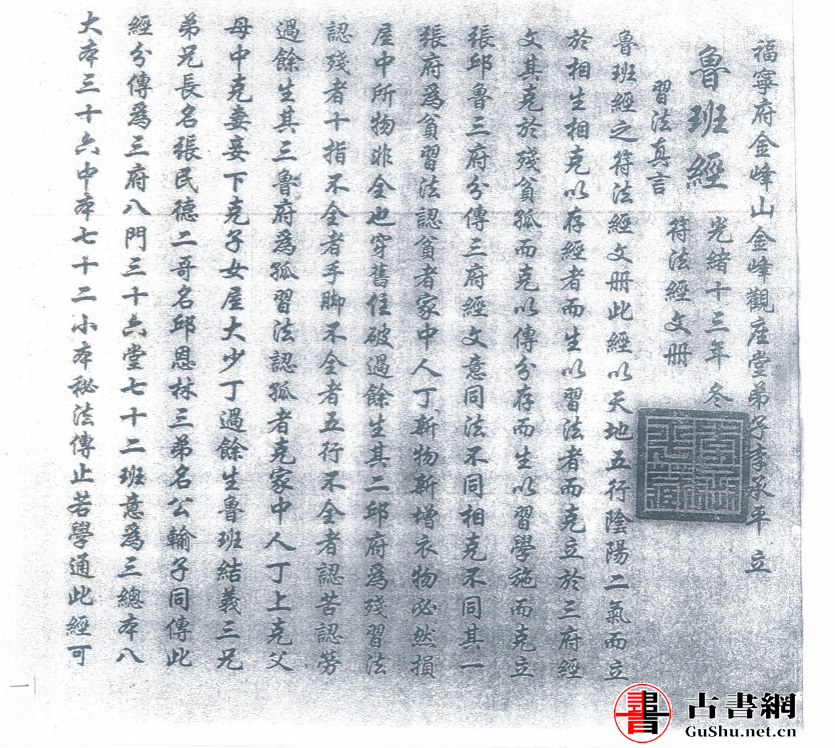 福寧府金峰山金峰觀座堂弟子李承平立
魯班經
光緒十三年冬
習法真言
符法經文册
魯班經之符法經文册此經以天地五行陰陽二氣而立
於相生相克以存經者而生以習法者而克立於三府經
文其克於殘貧孤而克以傳分存而生以習學施而克立
張邱魯三府分傳三府經文意同法不同相克不同其一
張府為貧習法認貧者家中人丁新物新增衣物必然損
屋中所物非全也穿舊住破過餘生其二邱府為殘習法
認殘者十指不全者手脚不全者五行不全者認苦認勞
過餘生其三魯府為孤習法認孤者克家中人丁上克父
母中克妻妾下克子女屋大少丁過餘生魯班結義三兄
弟兄長名張民德二哥名邱恩林三弟名公輸子同傳此
經分傳為三府八門三十六堂七十二班意為三總本八
大本三十六中本七十二小本秘法傳止若學通此經可
古書網
GuShu.net.cn
書